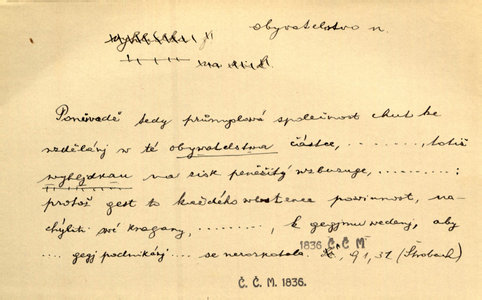 obyvatelstvo n.
na zisk.
Poněvadě tedy průmyslová společnost chut ke
vzdělánj w té obyvatelstwa částce, ........., totiž
wyhljdkau na zisk peněžitý wzbuzuge, .........:
protož gest to každého wlastence powinnost, na-
chýliti swé kragany, ........., k gegjmu wedenj, aby
... gegj podnikánj ... se nerozpotalo. X, 91, 31 (Strobach)
1836 Č Č M
Č. Č. M. 1836.